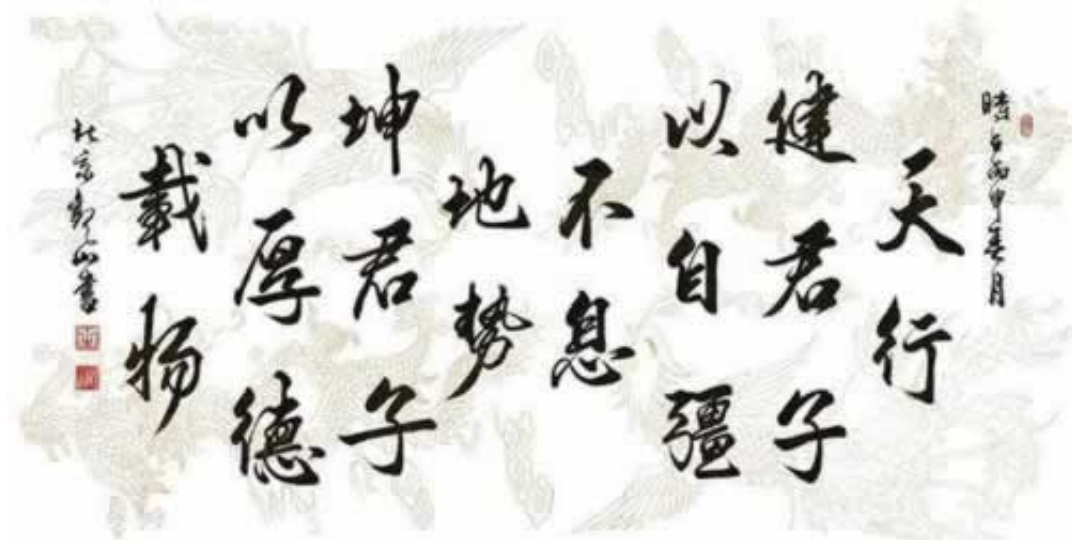 時在丙申春月
天行
健君子
以自彊
不息
地势
坤君子
以厚德
載物
北京郝山書